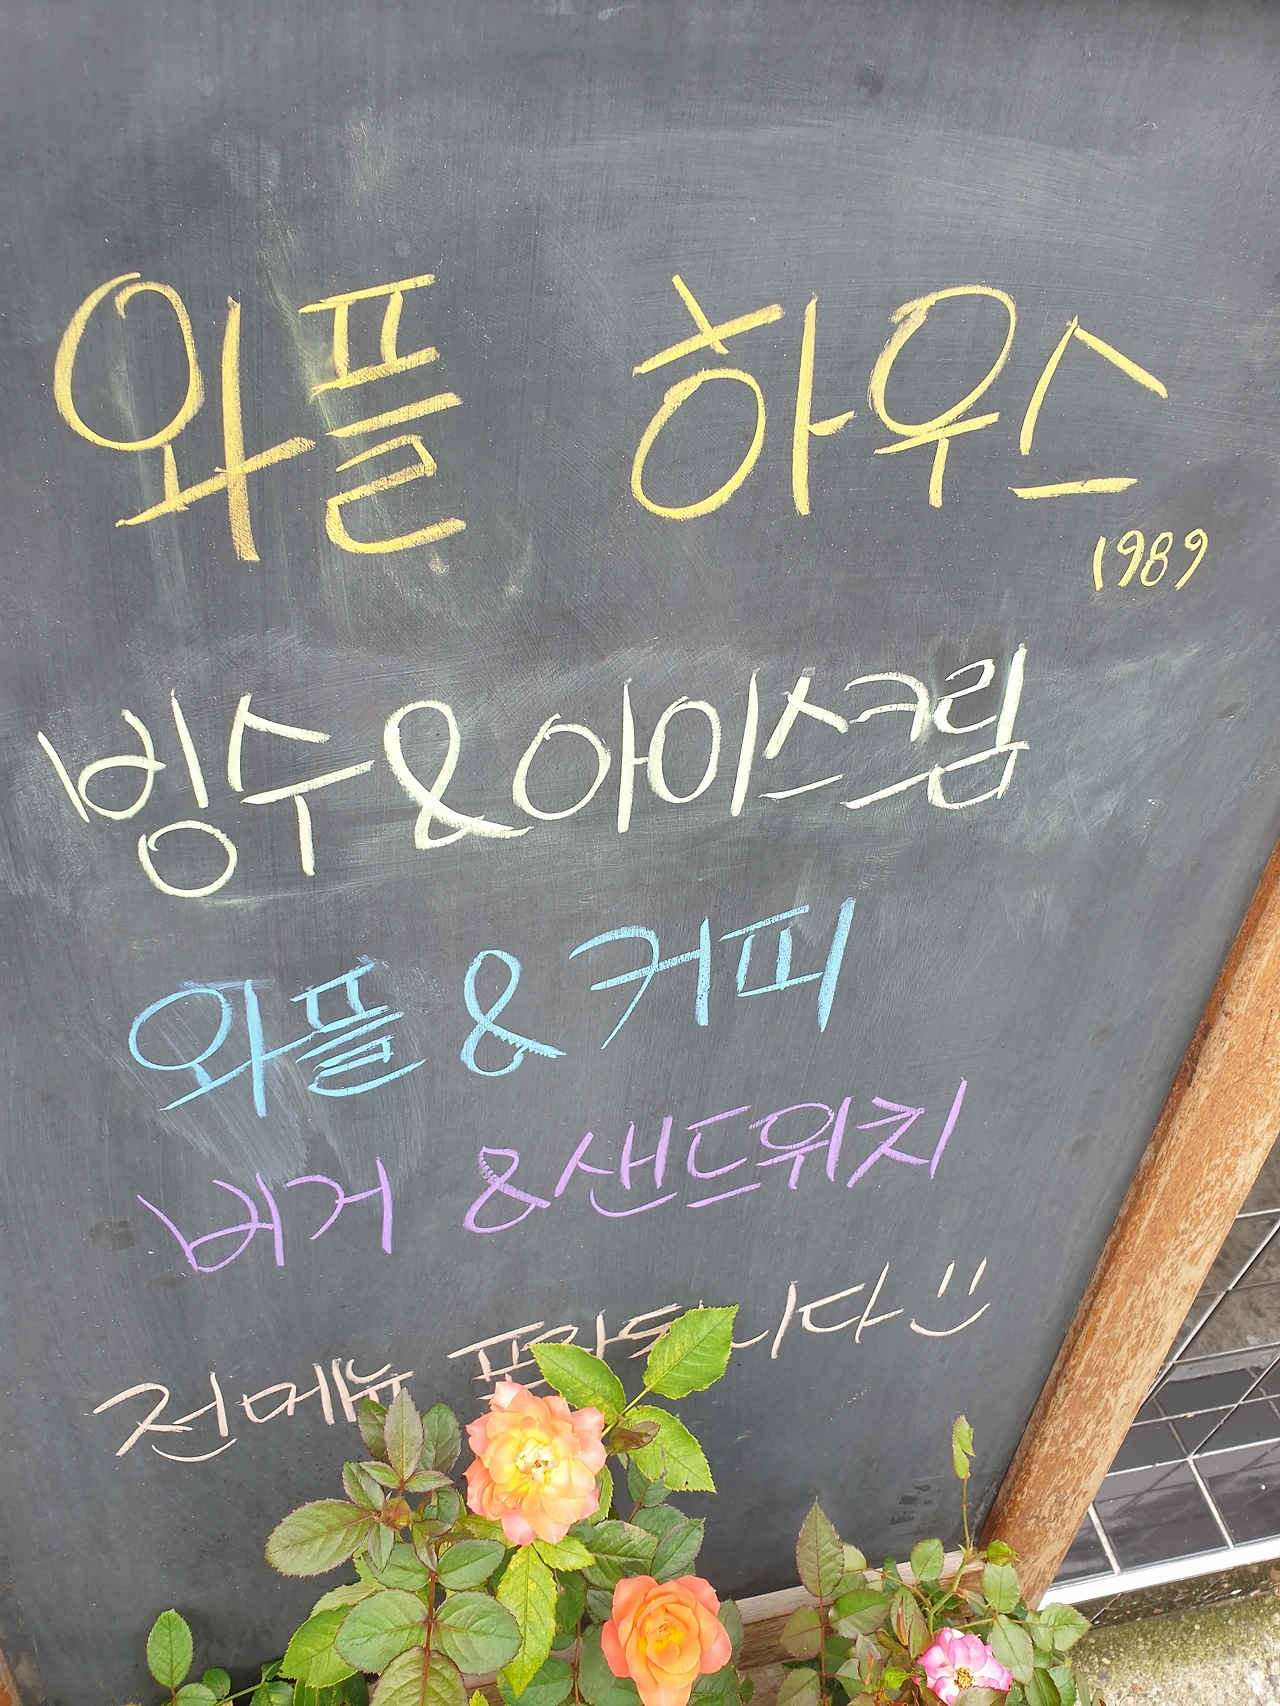 와플 하우스
1989
빙수 & 아이스크림
와플 & 커피
버거 & 샌드위치
전메뉴